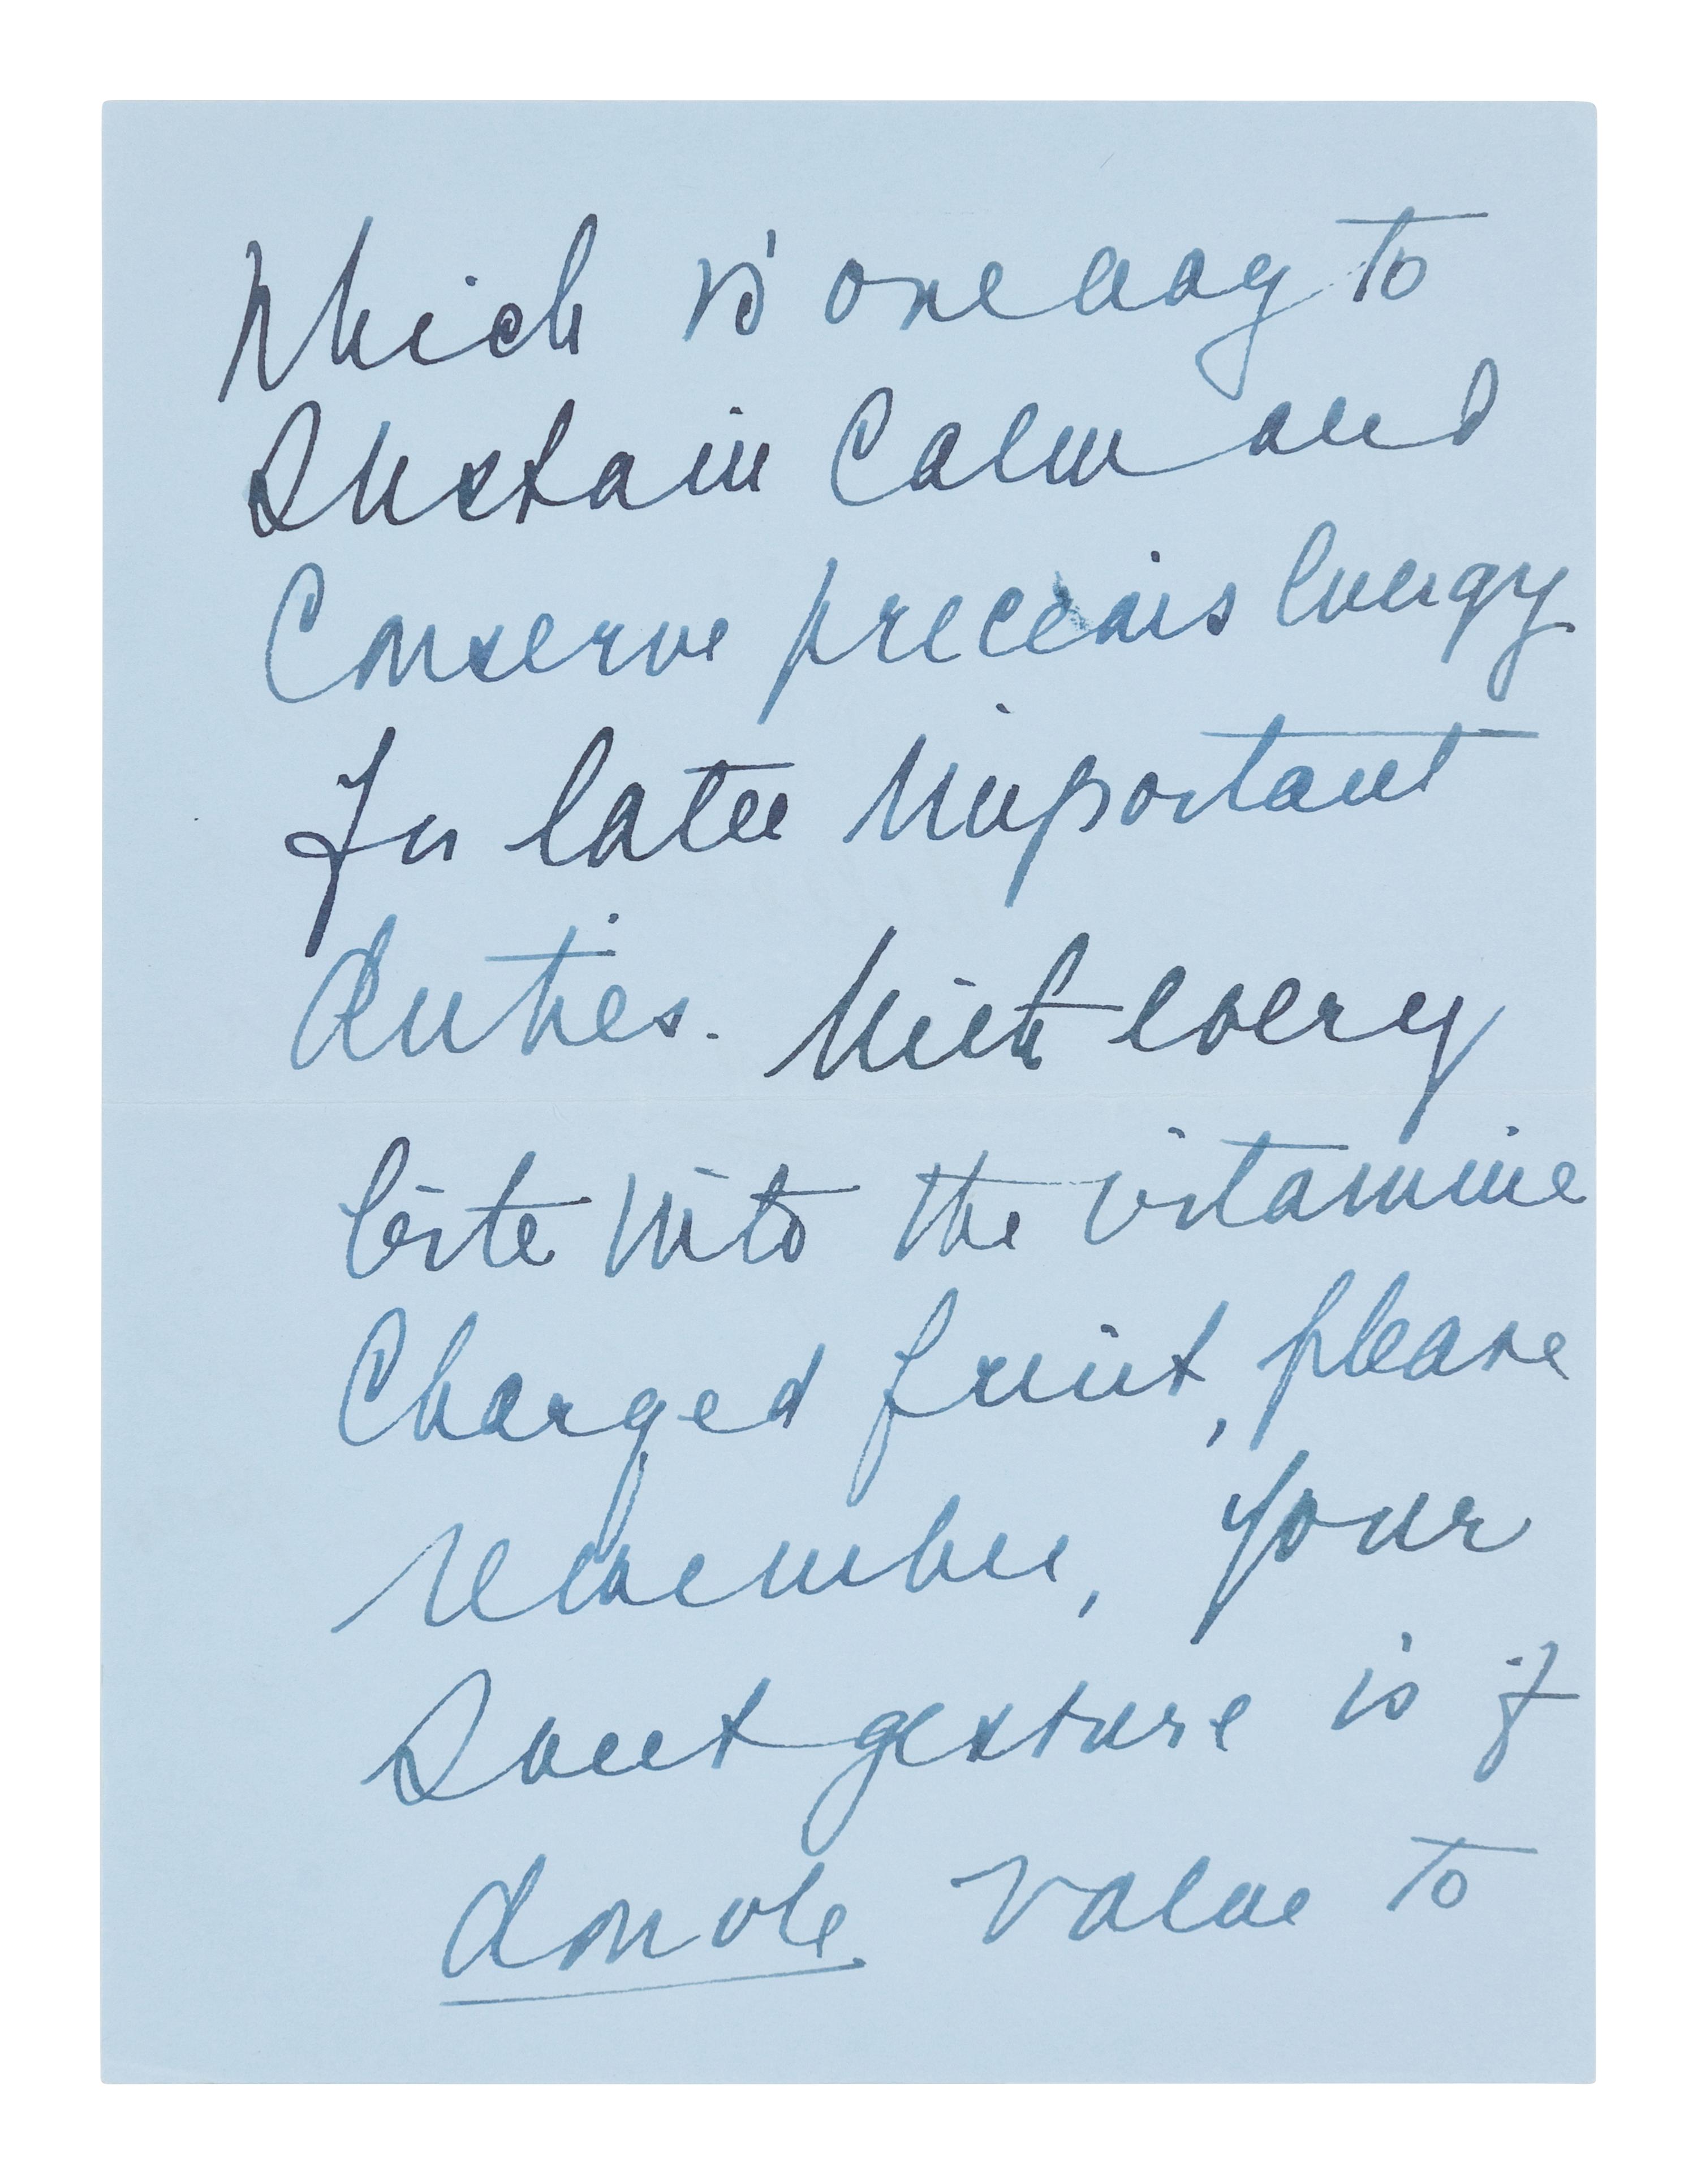 Which is one way to
Sustain Calm and
Conserve precious Energy
for later important
duties. With every
bite into the vitamine
Charged fruit, please
remember, your
Sweet gesture is of
double value to